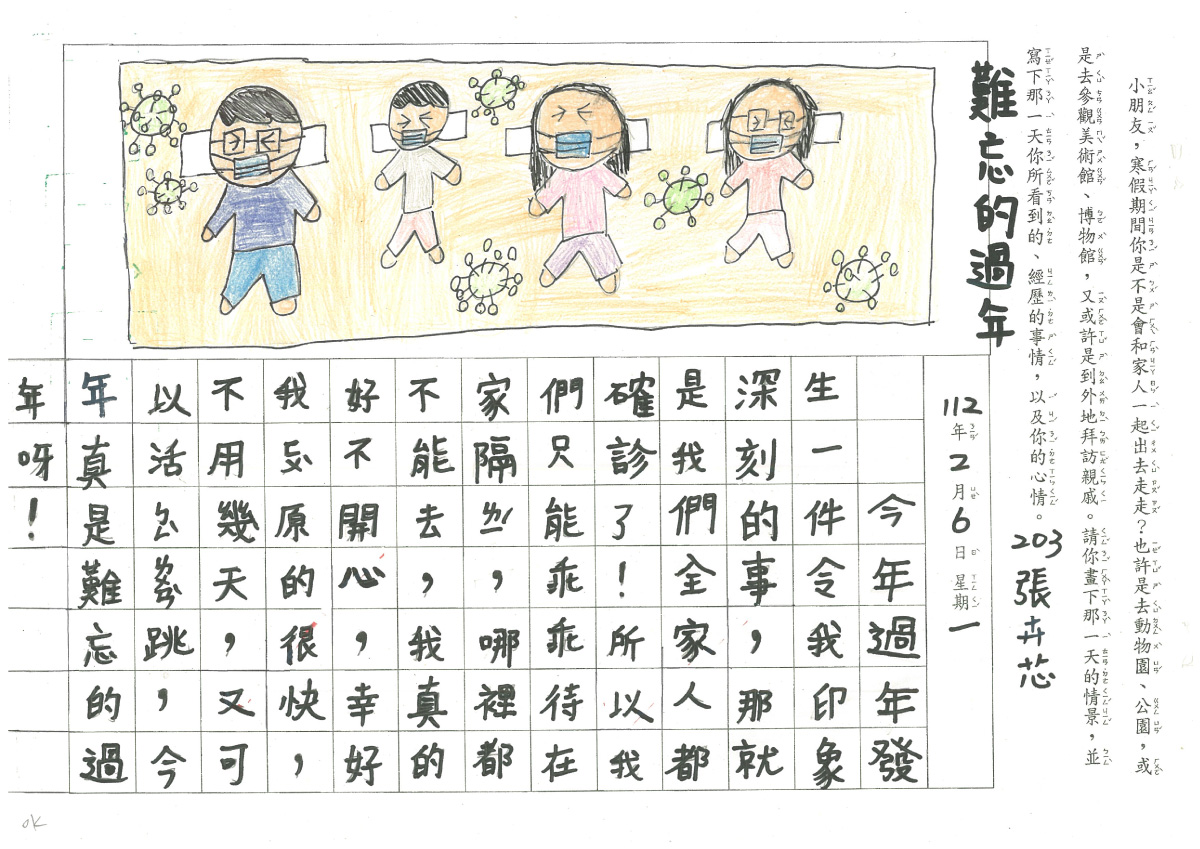 小朋友，寒假期間你是不是會和家人一起出去走走？也許是去動物園、公園，或
是去參觀美術館、博物館，又或許是到外地拜訪親戚。請你畫下那一天的情景，並
寫下那一天你所看到的、經歷的事情，以及你的心情。
203 張卉芯
難忘的過年
112年2月6日星期一
今年過年發
生一件令我印象
深刻的事，那就
是我們全家人都
確診了！所以我
們只能乖乖待在
家隔ㄌㄧˊ，哪裡都
不能去，我真的
好不開心，幸好
我原的很快，
不用幾天，又可
以活跳，今
年真是難忘的過
年呀！
ok